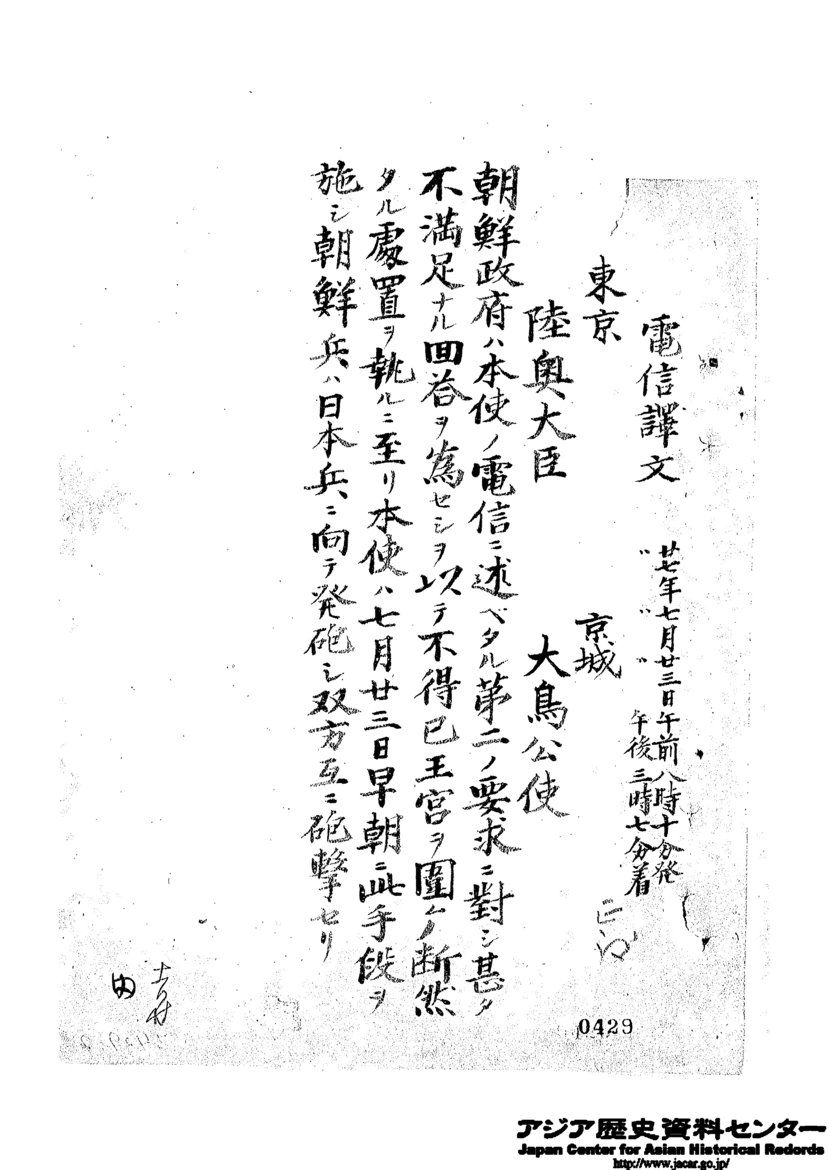 電信譯文
廿七年七月廿三日午前八時十分発
〃 〃 〃 午後三時七分着
東京
京城
陸奥大臣
大鳥公使
朝鮮政府ハ本使ノ電信ニ述ベタル第二ノ要求ニ對シ甚タ
不満足ナル回答ヲ為セシヲ以テ不得已王宮ヲ圍ムノ断然
タル處置ヲ執ルニ至リ本使ハ七月廿三日早朝ニ此手段ヲ
施シ朝鮮兵ハ日本兵ニ向テ発砲シ双方互ニ砲撃セリ
0429
アジア歴史資料センター
Japan Center for Asian Historical Redords
http://www.jacar.go.jp/